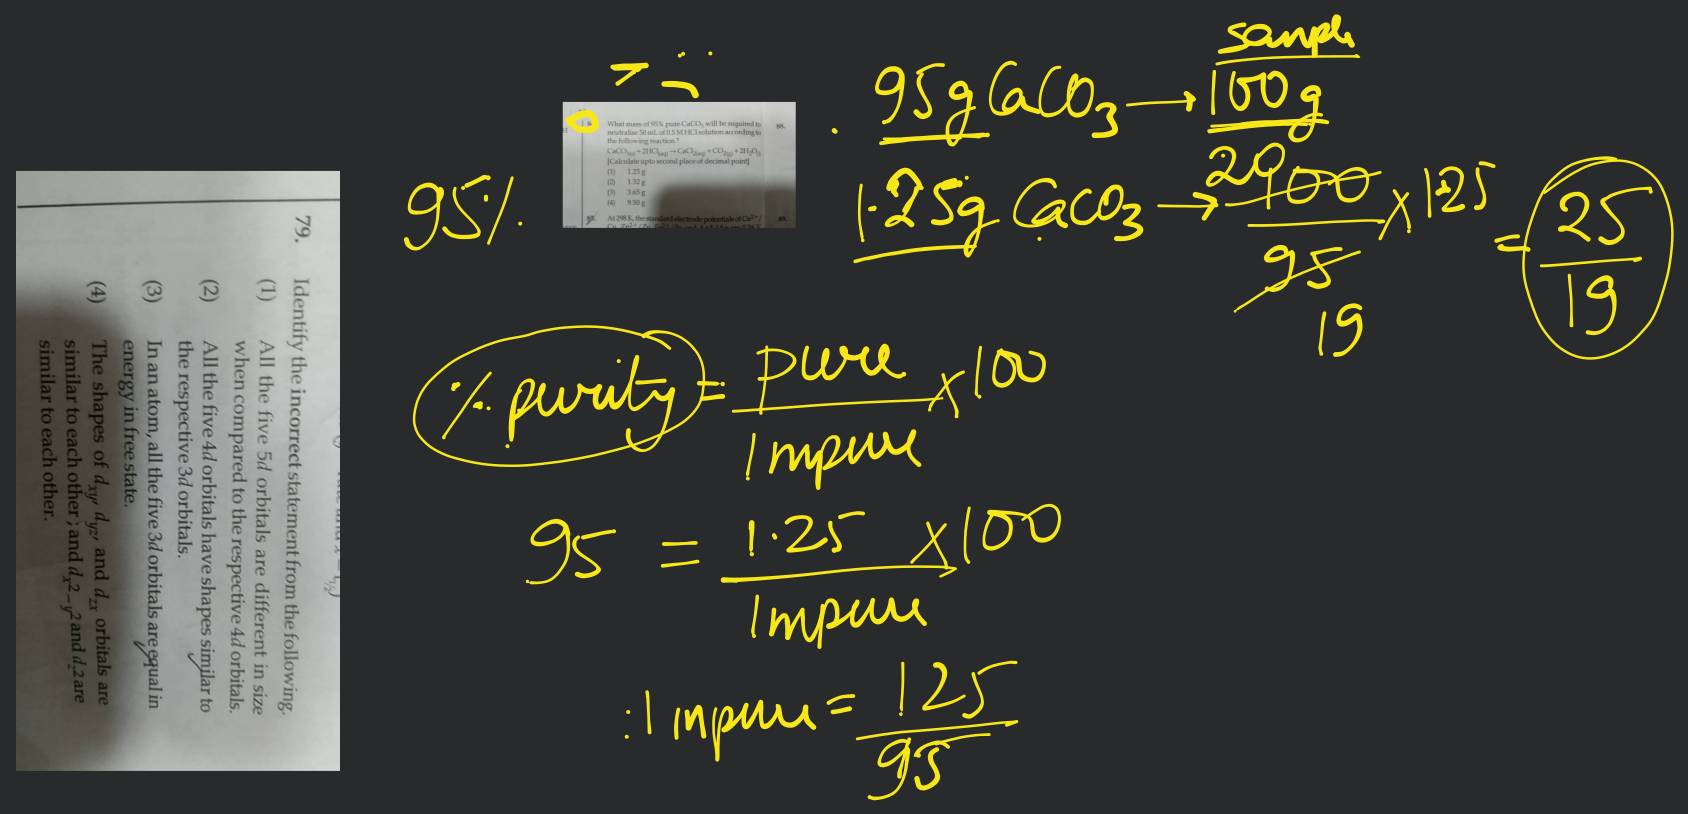 79. Identify the incorrect statement from the following.
(1) All the five 5d orbitals are different in size
when compared to the respective 4d orbitals.
(2) All the five 4d orbitals have shapes similar to
the respective 3d orbitals.
(3) In an atom, all the five 3d orbitals are equal in
energy in free state.
(4) The shapes of dxy, dyz, and dzx orbitals are
similar to each other ; and dx2–y2 and dz2 are
similar to each other.
What mass of 95% pure CaCO3 will be required to
neutralise 50 mL of 0.5 M HCl solution according to
the following reaction ?
CaCO3(s) + 2HCl(aq) → CaCl2(aq) + CO2(g) + 2H2O(l)
[Calculate upto second place of decimal point]
(1) 1.25 g
(2) 1.32 g
(3) 3.65 g
(4) 9.50 g
88.
At 298 K, the standard electrode potentials of Cu2+ /
95%.
sample
95g CaCO3 → 100g
1.25g CaCO3 → 100 × 1.25 = 25
20
95
19
19
% purity = pure × 100
Impure
95 = 1.25 × 100
Impure
: Impure = 125
95